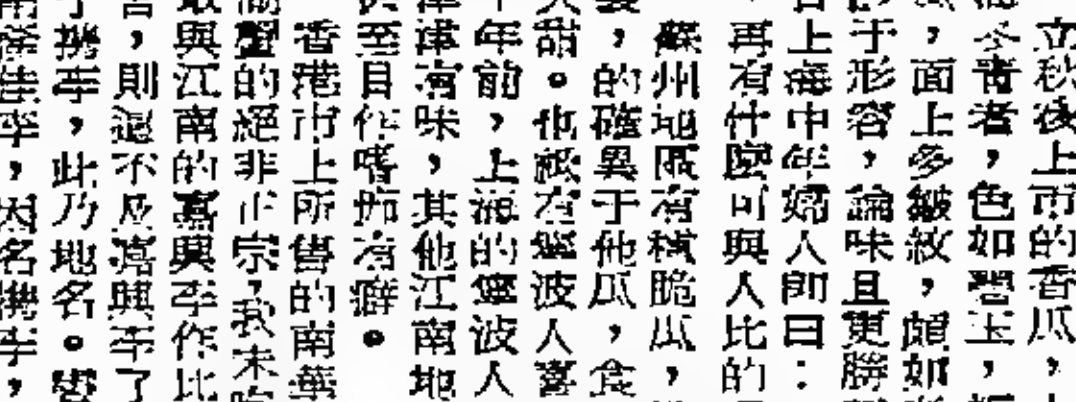 立秋後上市的香瓜，
冬青者，色如碧玉，
，面上多皺紋，頗如
于形容，論味且更勝
上海中年婦人卽曰：
再有什麼可與人比的
蘇州地區有樣脆瓜，
，的確異于他瓜，食
甜。也祇有寧波人喜
年前，上海的寧波人
津津有味，其他江南地
至目作嗜痂有癖。
香港市上所售的南華
蟹的絕非正宗，我未
與江南的嘉興李作比
，則遠不及嘉興李了
携李，此乃地名。
佳李，因名携李，